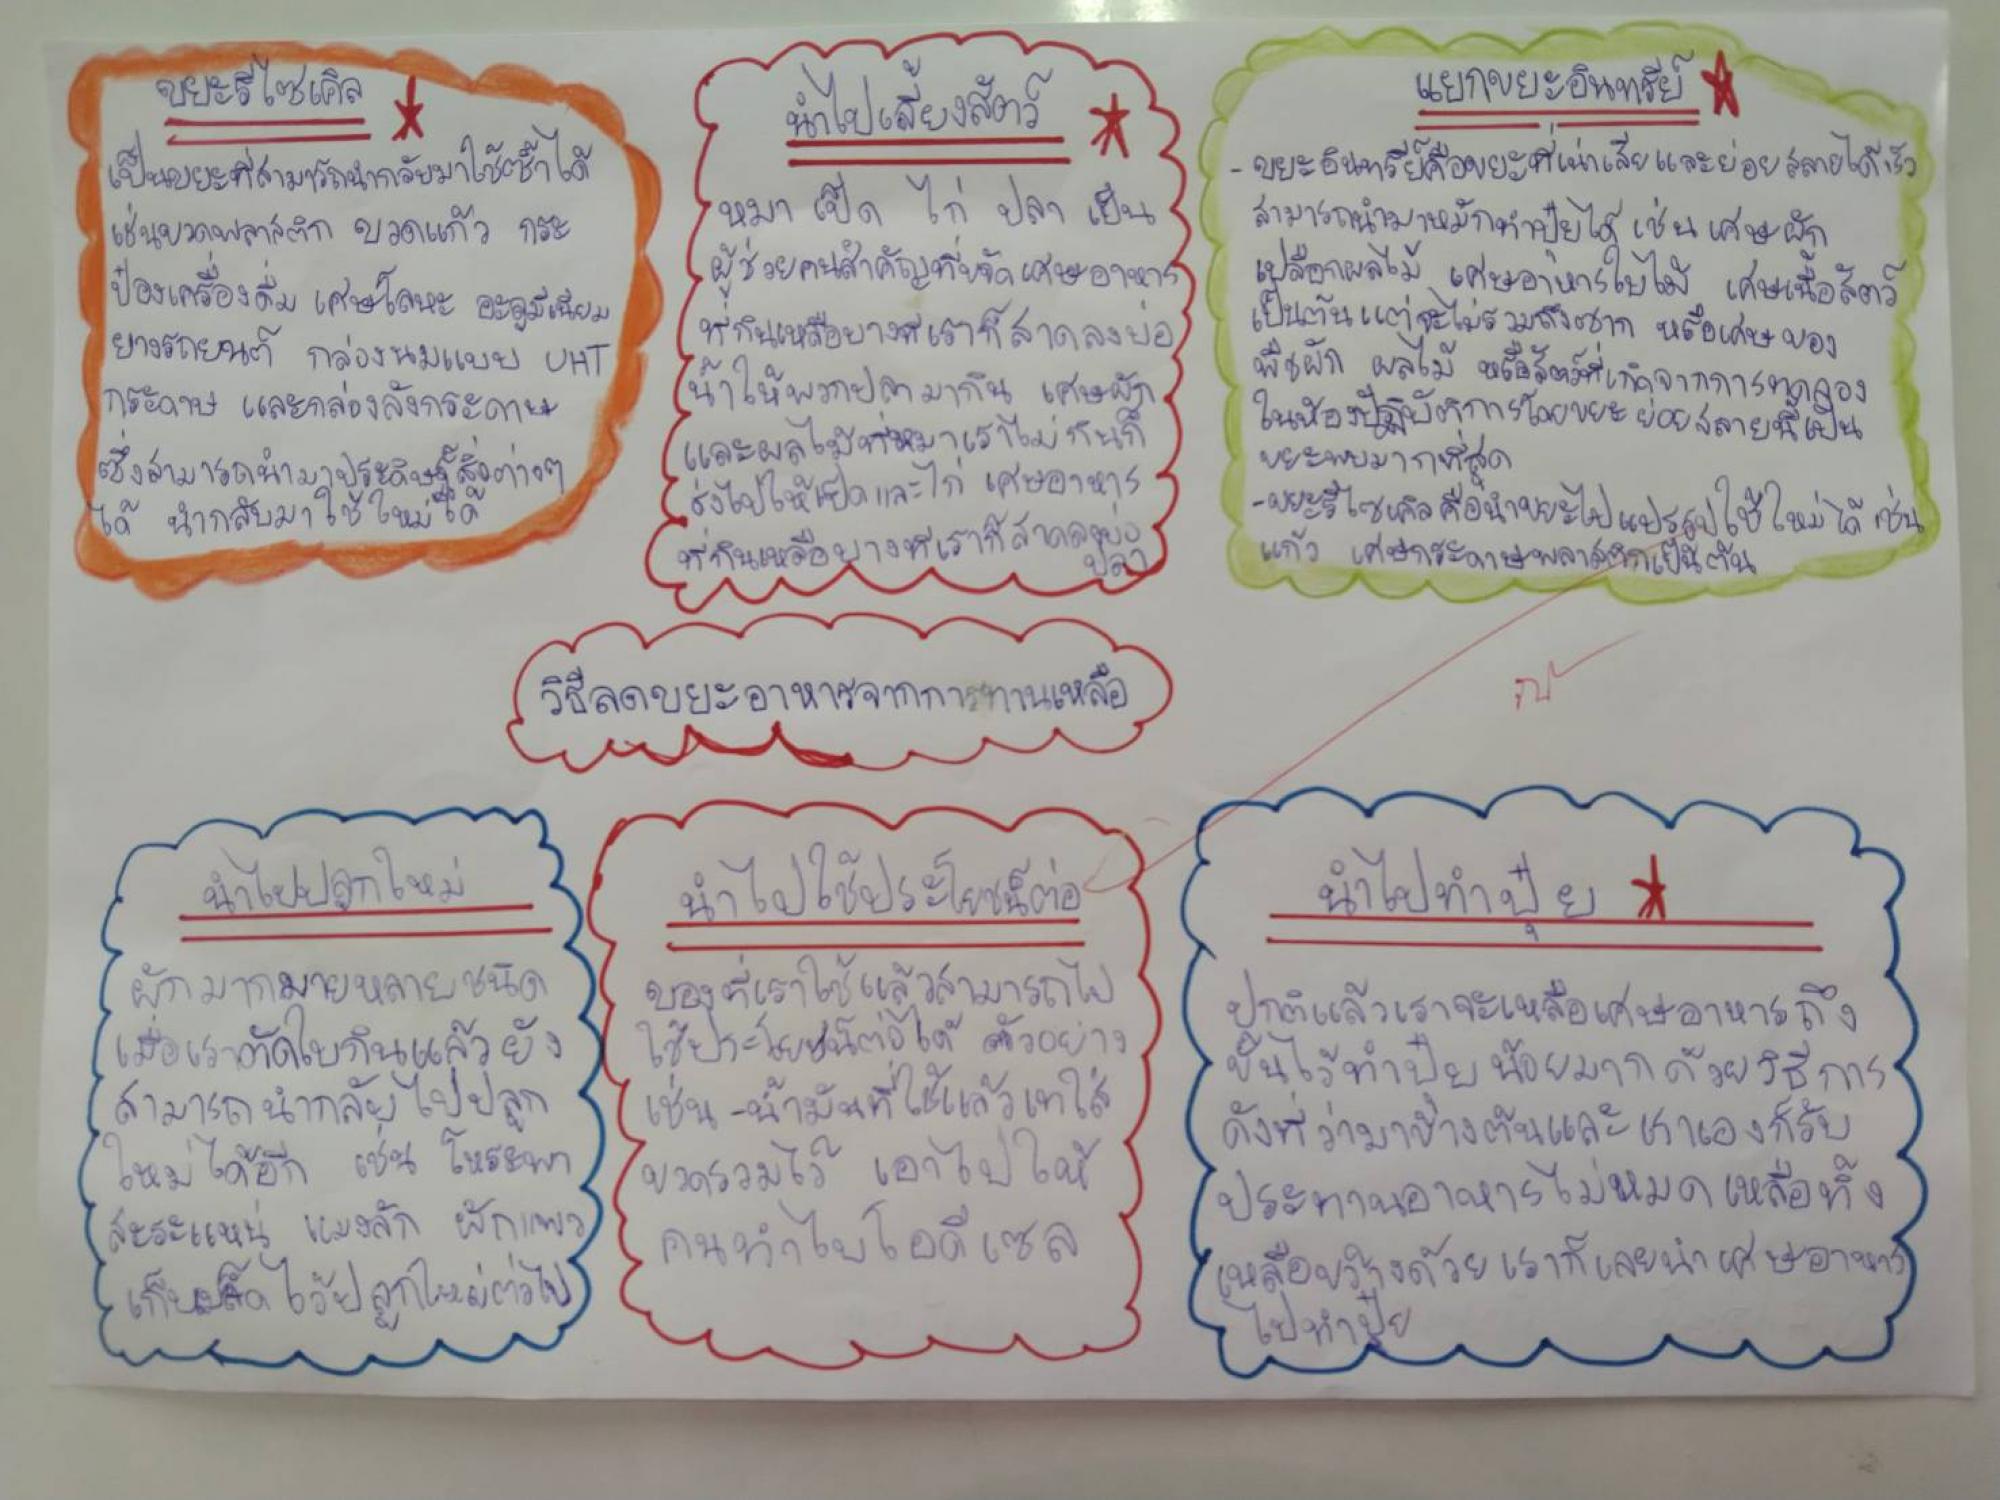 ขยะรีไซเคิล
เป็นขยะที่สามารถนำกลับมาใช้ซ้ำได้
เช่นขวดพลาสติก ขวดแก้ว กระ
ป๋องเครื่องดื่ม เศษโลหะ อะลูมีเนียม
ยางรถยนต์ กล่องนมแบบ UHT
กระดาษ และกล่องลังกระดาษ
ซึ่งสามารถนำมาประดิษฐ์สิ่งต่างๆ
ได้ นำกลับมาใช้ใหม่ได้
นำไปเลี้ยงสัตว์
หมา เป็ด ไก่ ปลา เป็น
ผู้ช่วยคนสำคัญที่ขจัดเศษอาหาร
ที่กินเหลือบางทีเราก็สาดลงบ่อ
น้ำให้พวกปลามากิน เศษผัก
และผลไม้ที่หมาเราไม่กินก็
ส่งไปให้เป็ดและไก่ เศษอาหาร
ที่กินเหลือบางทีเราก็สาดลงบ่อ
ปลา
แยกขยะอินทรีย์
- ขยะอินทรีย์คือขยะที่เน่าเสียและย่อยสลายได้เร็ว
สามารถนำมาหมักทำปุ๋ยได้ เช่น เศษผัก
เปลือกผลไม้ เศษอาหารใบไม้ เศษเนื้อสัตว์
เป็นต้นแต่จะไม่รวมถึงซาก หรือเศษของ
พืชผัก ผลไม้ หรือสัตว์ที่เกิดจากการทดลอง
ในห้องปฏิบัติการโดยขยะย่อยสลายนี้เป็น
ขยะพบมากที่สุด
-ขยะรีไซเคิลคือนำขยะไปแปรรูปใช้ใหม่ได้ เช่น
แก้ว เศษกระดาษพลาสติกเป็นต้น
วิธีลดขยะอาหารจากการทานเหลือ
นำไปปลูกใหม่
ผักมากมายหลายชนิด
เมื่อเราตัดใบกินแล้วยัง
สามารถนำกลับไปปลูก
ใหม่ได้อีก เช่น โหระพา
สะระแหน่ แมงลัก ผักแพว
ไว้ปลูกใหม่ต่อไป
นำไปใช้ประโยชน์ต่อ
ของที่เราใช้แล้วสามารถไป
ใช้ประโยชน์ต่อได้ ตัวอย่าง
เช่น -น้ำมันที่ใช้แล้วเทใส่
ขวดรวมไว้ เอาไปให้
คนทำไบโอดีเซล
นำไปทำปุ๋ย
ปกติแล้วเราจะเหลือเศษอาหารถึง
ขั้นไว้ทำปุ๋ยน้อยมากด้วยวิธีการ
ดังที่ว่ามาข้างต้นและเราเองก็รับ
ประทานอาหารไม่หมดเหลือทิ้ง
เหลือขว้างด้วยเราก็เลยนำเศษอาหาร
ไปทำปุ๋ย